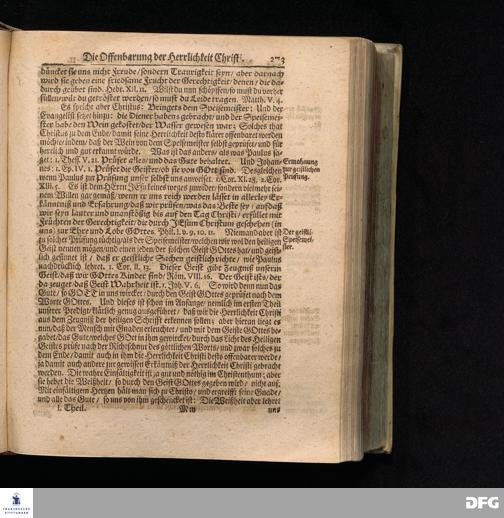 Die Offenbarung der Herrlichkeit Christi. 273
düncket sie uns nicht Freude/ sondern Traurigkeit seyn/ aber darnach
wird sie geben eine friedsame Frucht der Gerechtigkeit/ denen/ die da-
durch geübet sind. Hebr. XII, 11. Wilst du nun schöpffen/ so must du vorher
füllen/ wilst du getröstet werden/ so must du Leide tragen. Matth. V. 4.
Es spricht aber Christus: Bringets dem Speisemeister: Und der
Evangelist setzet hinzu: die Diener habens gebracht/ und der Speisemei-
ster habe den Wein gekostet der Wasser gewesen war; Solches that
Christus zu dem Ende/ damit seine Herrlichkeit desto klärer offenbaret werden
möchte/ indem/ daß der Wein von dem Speisemeister selbst geprüfet/ und für
herrlich und gut erkannt würde. Was ist das anders/ als was Paulus sa-
get: 1. Thess. V. 21. Prüfet alles/ und das Gute behaltet. Und Johan-
nes: 1. Ep. IV. 1. Prüfet die Geister/ ob sie von GOtt sind. Desgleichen
wenn Paulus zur Prüfung unser selbst uns anweiset. 1. Cor. XI. 28. 2. Cor.
XIII. 5. Es ist dem HErrn JEsu keines weges zuwider/ sondern vielmehr sei-
nem Willen gar gemäß/ wenn wir uns reich werden lassen in allerley Er-
känntniß und Erfahrung/ daß wir prüfen/ was das Beste sey/ auf daß
wir seyn lauter und unanstößig bis auf den Tag Christi/ erfüllet mit
Früchten der Gerechtigkeit/ die durch JEsum Christum geschehen (in
uns) zur Ehre und Lobe GOttes. Phil. I. v. 9. 10. 11. Niemand aber ist
zu solcher Prüfung tüchtig/ als der Speisemeister/ welchen wir wol den heiligen
Geist nennen mögen/ und einen jeden der solchen Geist GOttes hat/ und geist-
lich gesinnet ist/ daß er geistliche Sachen geistlich richte/ wie Paulus
nachdrücklich lehret. 1. Cor. II. 13. Dieser Geist gibt Zeugniß unserm
Geist/ daß wir GOttes Kinder sind/ Röm. VIII. 16. Der Geist ists/ der
da zeuget/ daß Geist Wahrheit ist. 1. Joh. V. 6. So wird denn nun das
Gute/ so GOTT in uns wircket/ durch den Geist GOttes geprüfet nach dem
Worte GOttes. Und dieses ist schon im Anfange/ nemlich im ersten Theil
unserer Predigt/ klärlich genug ausgeführet/ daß wir die Herrlichkeit Christi
aus dem Zeugniß der heiligen Schrifft erkennen sollen; aber hieran lieget es
nun/ daß der Mensch mit Gnaden erleuchtet/ und mit dem Geiste GOttes be-
gabet/ das Gute/ welches GOtt in ihm gewircket/ durch das Licht des Heiligen
Geistes prüfe nach der Richtschnur des göttlichen Worts/ und zwar solches zu
dem Ende/ damit auch in ihm die Herrlichkeit Christi desto offenbarer werde/
ja damit auch andere zur gewissen Erkäntniß der Herrlichkeit Christi gebracht
werden. Die wahre Einfältigkeit ist ja gut und nöthig im Christenthum; aber
sie hebet die Weißheit/ so durch den Geist GOttes gegeben wird/ nicht auf.
Mit einfältigem Hertzen hält man sich zu Christo/ und ergreifft seine Gnade/
und alle das Gute/ so uns von ihm geschencket ist: Die Weißheit aber lehret
I. Theil. Mm uns
Ermahnung
zur geistlichen
Prüfung.
Der geistli.
Speisemei-
ster.
FRANCKESCHE
STIFTUNGEN
DFG